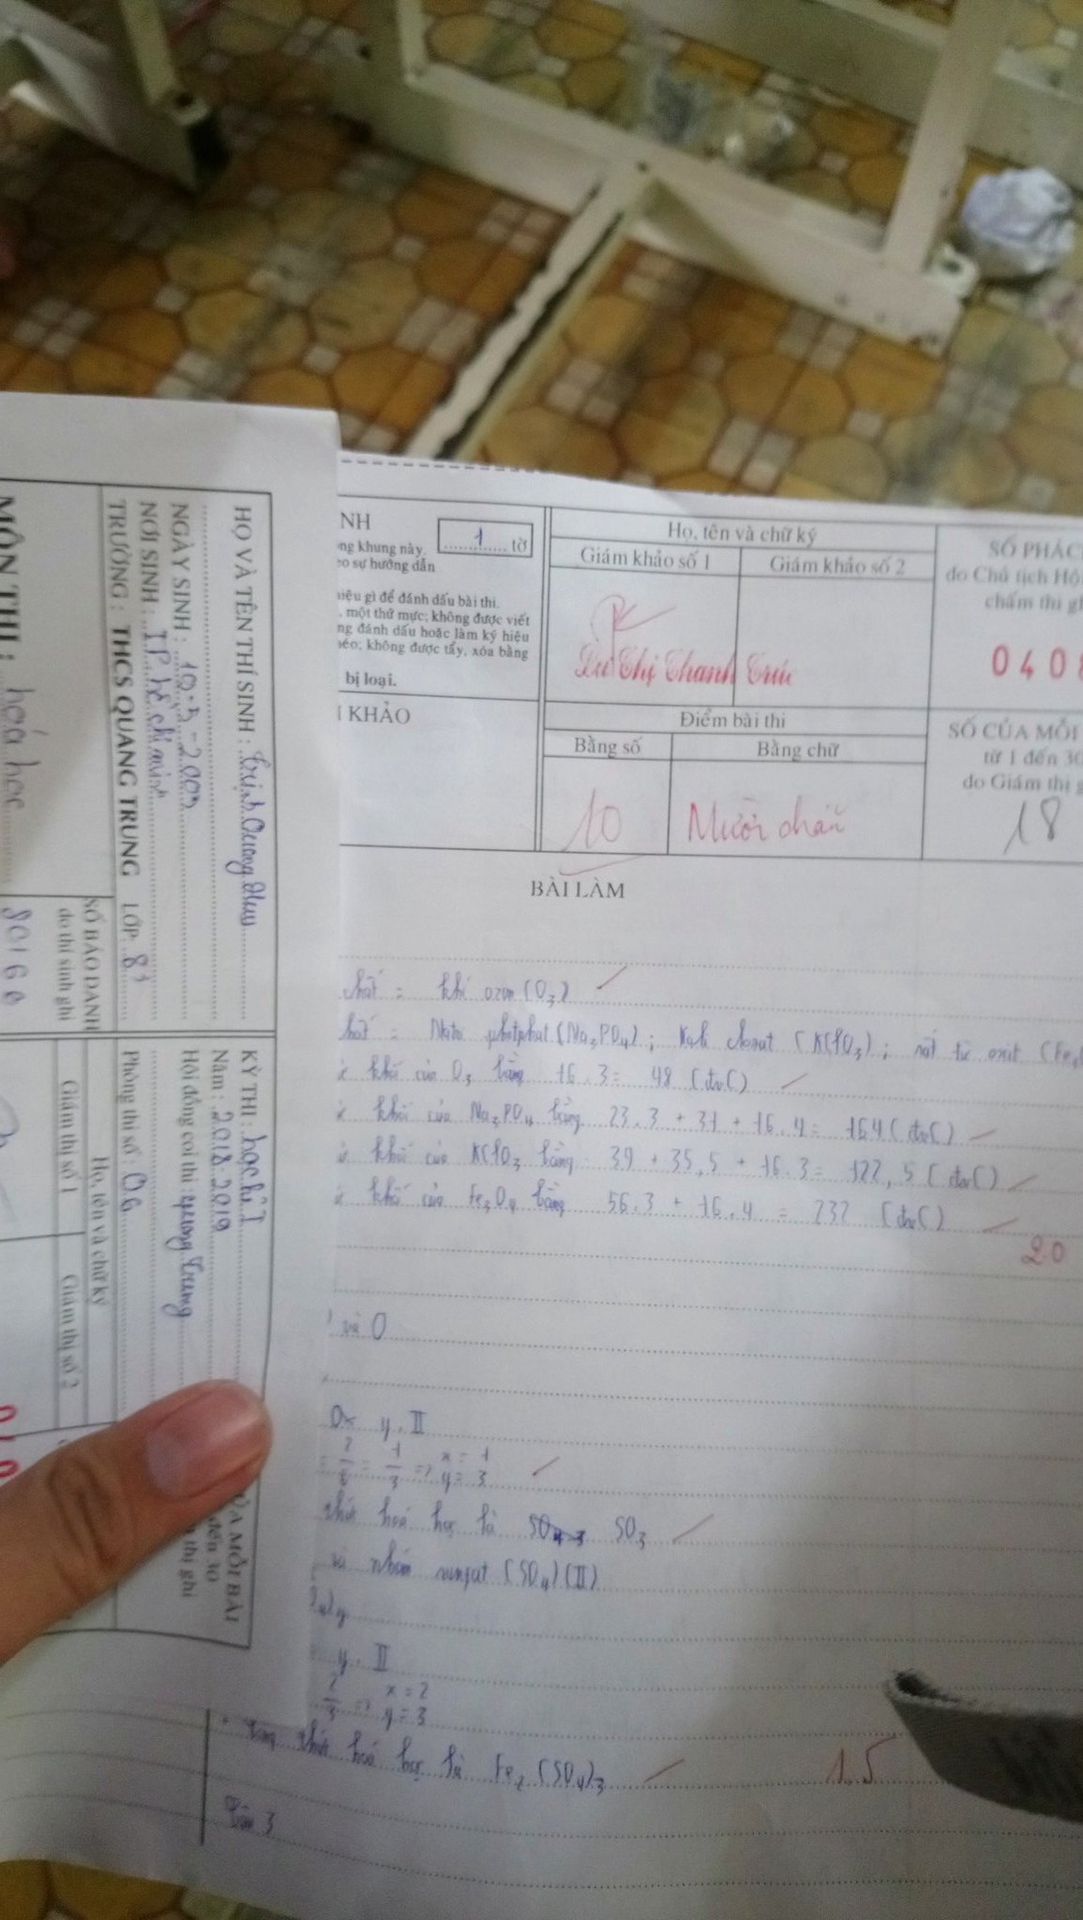 HỌ VÀ TÊN THÍ SINH : Trịnh Quang Huy
NGÀY SINH : 10-5-2005
NƠI SINH : TP hồ chí minh
TRƯỜNG : THCS QUANG TRUNG LỚP: 8
MÔN THI : hoá học
SỐ BÁO DANH
do thí sinh ghi
80160
KỲ THI : học kì I
Năm : 2018.2019
Hội đồng coi thi : quang trung
Phòng thi số : 06
Họ, tên và chữ ký
Giám thị số 1
Giám thị số 2
ỦA MỖI BÀI
đến 30
thị ghi
NH
ng khung này.
1 tờ
eo sự hướng dẫn
hiệu gì để đánh dấu bài thi.
, một thứ mực; không được viết
ng đánh dấu hoặc làm ký hiệu
héo; không được tẩy, xóa bằng
bị loại.
I KHẢO
Họ, tên và chữ ký
Giám khảo số 1
Giám khảo số 2
Thị Thanh Trúc
Điểm bài thi
Bằng số
Bằng chữ
10
Mười chẵn
SỐ PHÁC
do Chủ tịch Hộ
chấm thi gh
0408
SỐ CỦA MỖI
từ 1 đến 30
do Giám thị g
18
BÀI LÀM
chất : khí ozon (O3)
chất : Natri photphat (Na3PO4) ; Kali clorat (KClO3) ; sắt từ oxit (Fe3
khối của O3 bằng 16.3 = 48 (đvC)
khối của Na3PO4 bằng 23.3 + 31 + 16.4 = 164 (đvC)
khối của KClO3 bằng 39 + 35,5 + 16.3 = 122,5 (đvC)
khối của Fe3O4 bằng 56.3 + 16.4 = 232 (đvC)
2.0
và O
y . II
= 2/6 = 1/3 => x = 1
y = 3
thức hoá học là SO3
và nhóm sunfat (SO4) (II)
y . II
2/3 => x = 2
y = 3
thức hoá học là Fe2(SO4)3
1.5
Câu 3